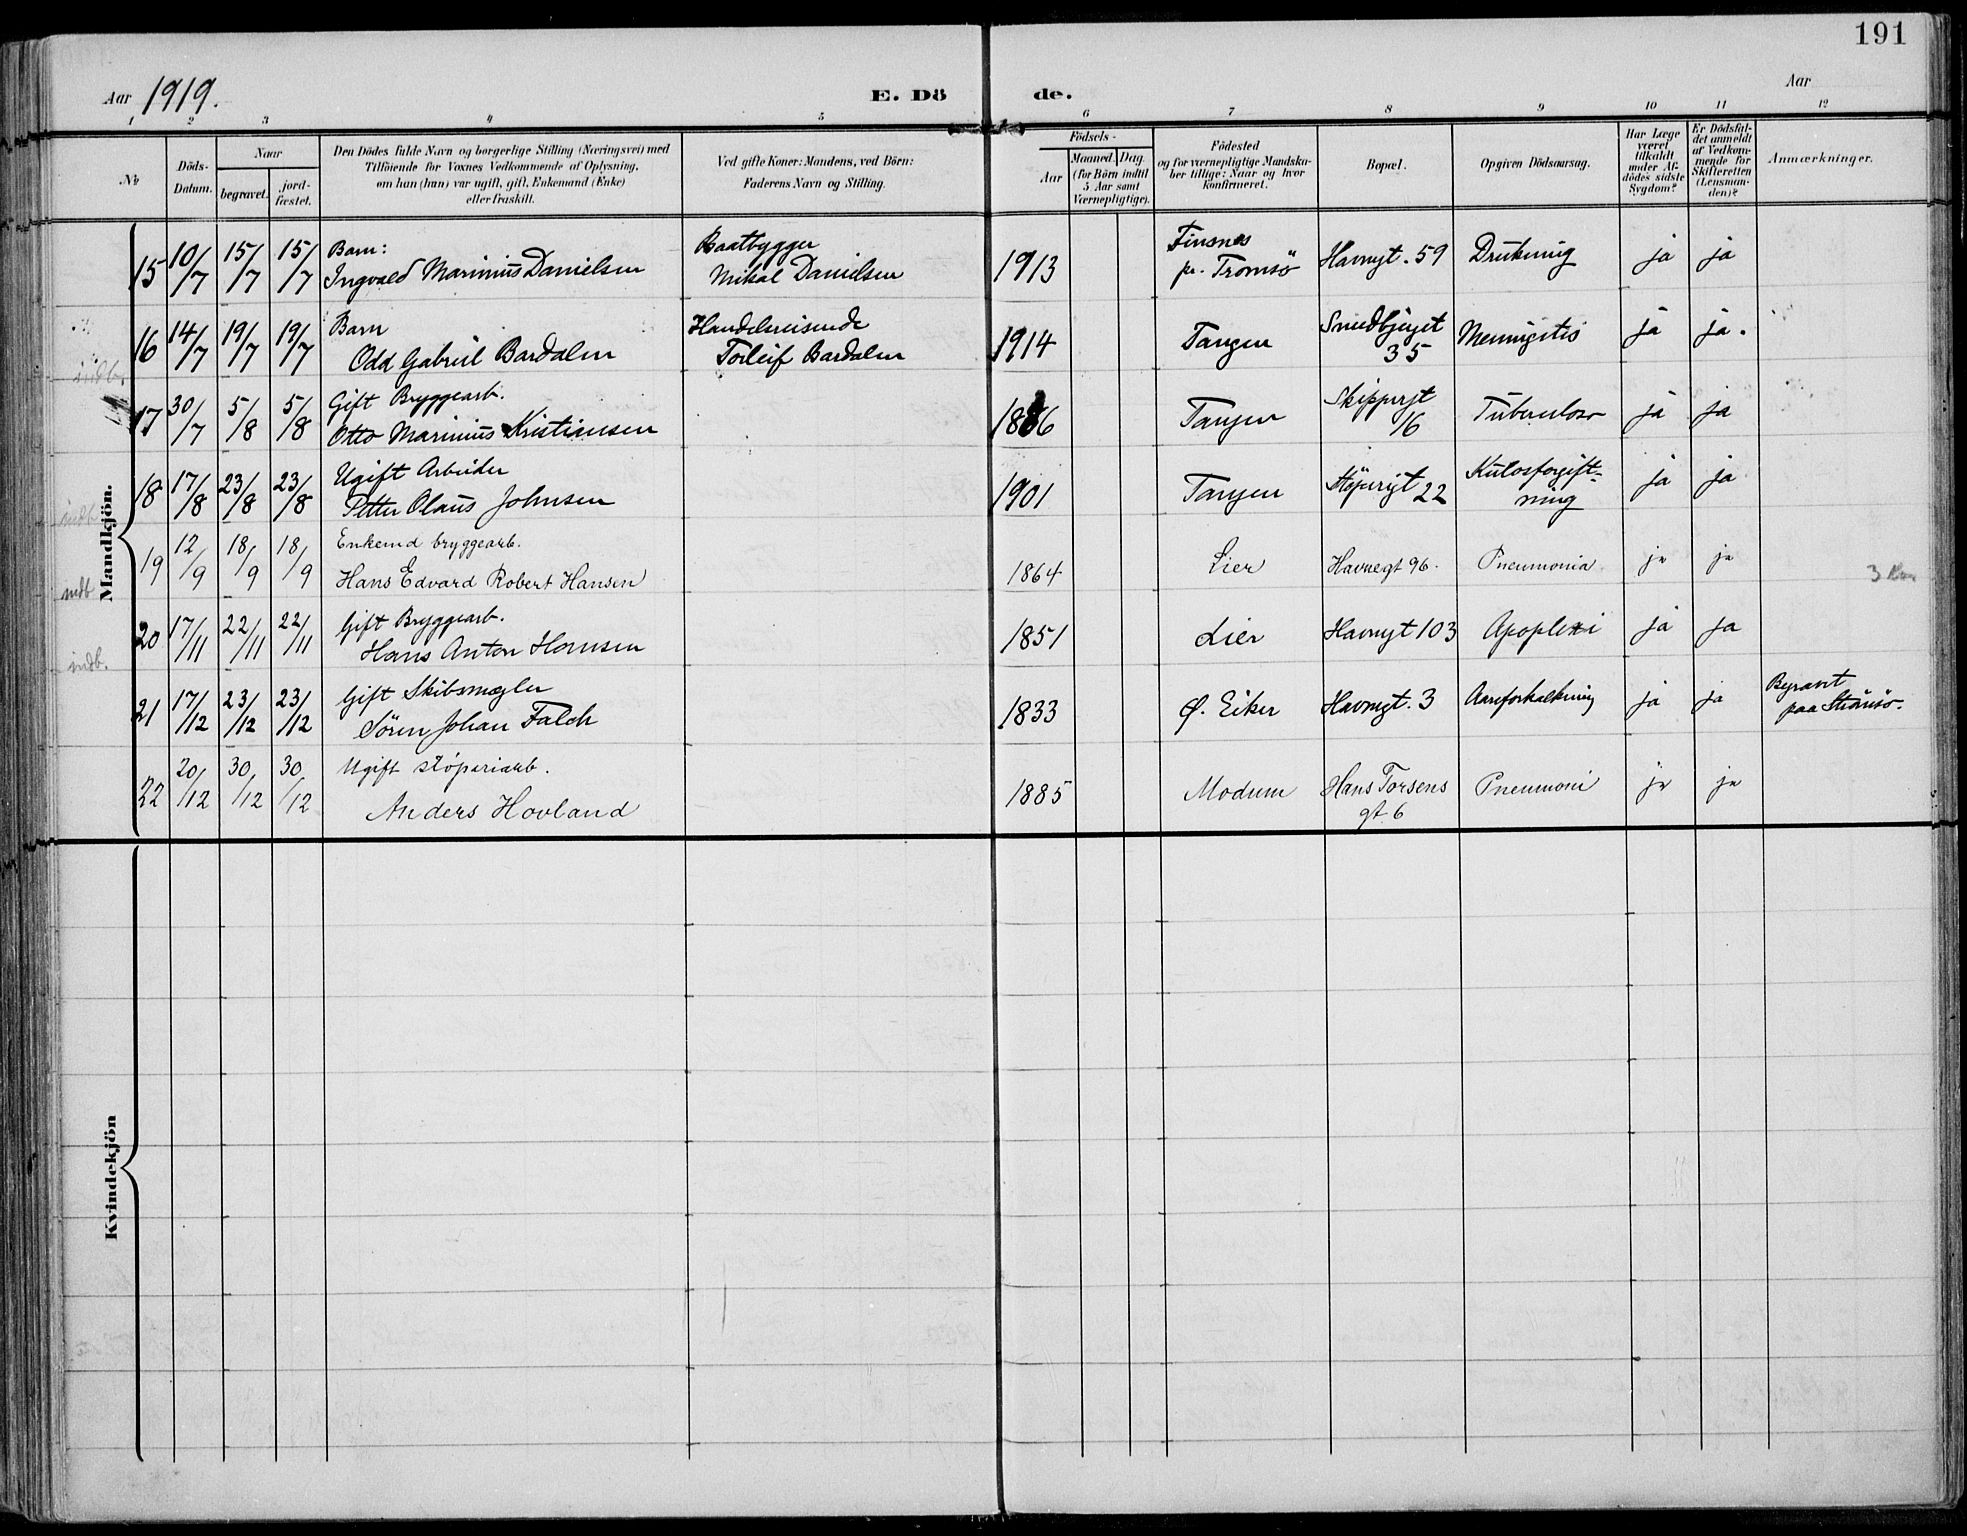 191
Aar 1919.
E. Dö de.
Aar
1 2 3 4 5 6 7 8 9 10 11 12
№
Döds-Datum.
Naar
begravet.
jord-fæstet.
Den Dödes fulde Navn og borgerlige Stilling (Næringsvei) med
Tilföiende for Voxnes Vedkommende af Oplysning,
om han (hun) var ugift, gift, Enkemand (Enke)
eller fraskilt.
Ved gifte Koner: Mandens, ved Börn:
Faderens Navn og Stilling.
Födsels-
Aar
Maaned. Dag.
(for Börn indtil
5 Aar samt
Værnepligtige).
Födested
og for værnepligtige Mandska-
ber tillige: Naar og hvor
konfirmeret.
Bopæl.
Opgiven Dödsaarsag.
Har Læge
været
tilkaldt
under Af-
dödes sidste
Sygdom?
Er Dödsfal-
det anmeldt
af Vedkom-
mende for
Skifteretten
(Lensman-
den)?
Anmærkninger.
Mandkjön.
15 10/7 15/7 15/7 Barn:
Ingvald Marinius Danielsen
Baatbygger
Mikal Danielsen
1913 Finsnes
pr. Tromsö
Havnegt. 59 Drukning ja ja
16 14/7 19/7 19/7 Barn
Odd Gabriel Bardalen
Handelsreisende
Torleif Bardalen
1914 Tangen Smedbjerget
35
Meningitis ja ja.
indb.
17 30/7 5/8 5/8 Gift Bryggearb.
Otto Marinius Kristiansen
Tangen Skippergt
16
Tuberculose ja ja
18 17/8 23/8 23/8 Ugift Arbeider
Petter Olaus Johnsen
1901 Tangen Stöperigt 22 Kulosforgift-
ning
ja ja
indb
19 12/9 18/9 18/9 Enkemd bryggearb.
Hans Edvard Robert Hansen
1864 Lier Havnegt 96. Pneumonia. ja ja
3
indb
20 17/11 22/11 22/11 Gift Bryggearb.
Hans Anton Hansen
1851 Lier Havnegt 103 Apoplexi ja ja
indb.
21 17/12 23/12 23/12 Gift Skibsmægler
Sören Johan Falch
1833 Ø. Eiker Havnegt. 3 Aareforkalkning ja ja Begravet
paa Strömsö.
22 20/12 30/12 30/12 Ugift stöperiarb.
Anders Hovland
1885 Modum Hans Torsens
gt. 6
Pneumoni ja ja
Kvindekjön